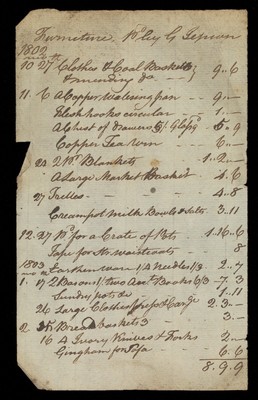 Furniture
1802
10 27 Clothes & Coal Baskets
& mending &c 9 „ 6
11 . 6 A Copper, Watering pan 9 „ —
Flesh hooks circular 1 „ —
A Chest of Drawers 5 „ 9
Copper Tea Urn 6 „ —
2 Blankets 1 „ 2 „ —
A Large Market Basket 4 „ 6
27 4 „ 8
Creampot Milk Bowls & Salts 3 „ 11
12 . 27 for a Crate of 1 „ 16 „ 6
Tape for waistcoats 8
1803
Earthenware 1/4 Needles 1/3 2 „ 7
1 . 17 2 Basons two Books 6/3 7 „ 3
Sundry pots &c 1 „ 11
26 Large Clothes 2 „ 3 „ —
2 Bread baskets 3 3 „ —
16 4 Ivory Knives & Forks 2 „ —
Gingham for 6 „ 6
8 „ 9 „ 9